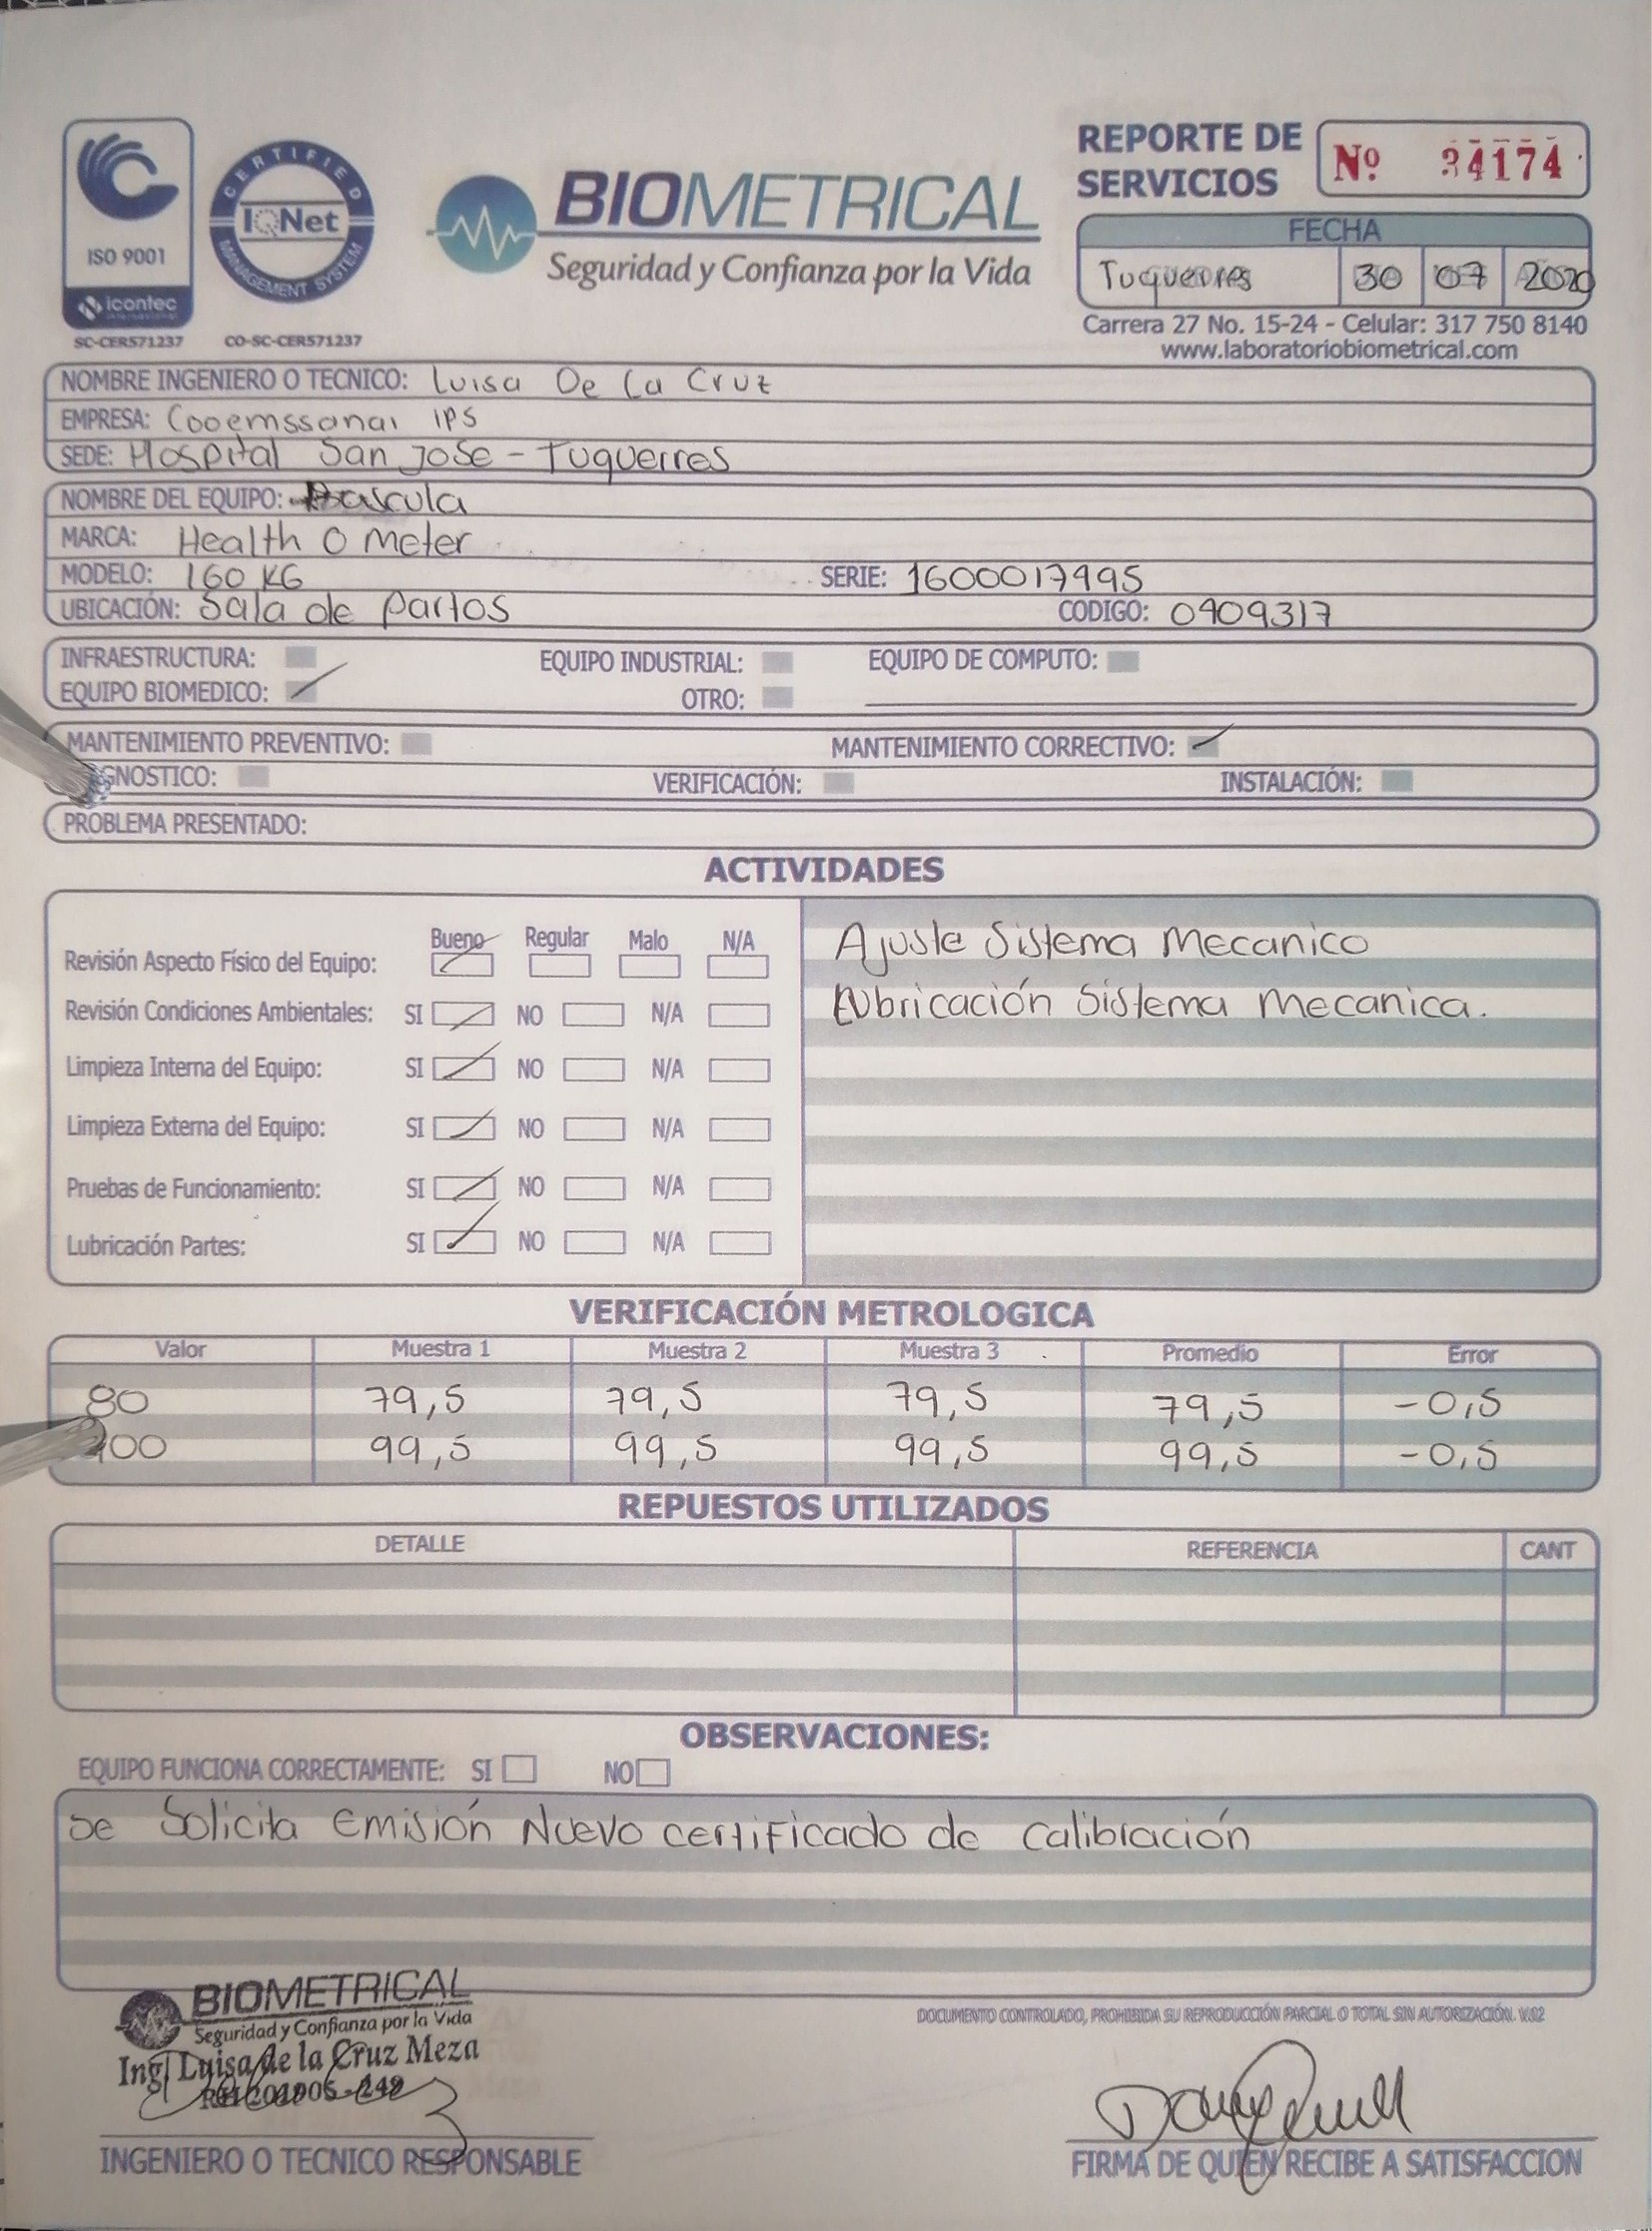 REPORTE DE SERVICIOS
Nº 34174
ISO 9001
icontec
internacional
SC-CER571237
CERTIFIED
IQNet
MANAGEMENT SYSTEM
CO-SC-CER571237
BIOMETRICAL
Seguridad y Confianza por la Vida
FECHA
Tuquerres 30 07 2020
Carrera 27 No. 15-24 - Celular: 317 750 8140
www.laboratoriobiometrical.com
NOMBRE INGENIERO O TECNICO: Luisa De La Cruz
EMPRESA: Cooemssanar IPS
SEDE: Hospital San Jose - Tuquerres
NOMBRE DEL EQUIPO: Bascula
MARCA: Health O meter
MODELO: 160 KG SERIE: 1600017995
UBICACIÓN: Sala de Partos CODIGO: 0909317
INFRAESTRUCTURA: EQUIPO INDUSTRIAL: EQUIPO DE COMPUTO:
EQUIPO BIOMEDICO: OTRO:
MANTENIMIENTO PREVENTIVO: MANTENIMIENTO CORRECTIVO:
GNOSTICO: VERIFICACIÓN: INSTALACIÓN:
PROBLEMA PRESENTADO:
ACTIVIDADES
Bueno Regular Malo N/A
Revisión Aspecto Físico del Equipo:
Revisión Condiciones Ambientales: SI NO N/A
Limpieza Interna del Equipo: SI NO N/A
Limpieza Externa del Equipo: SI NO N/A
Pruebas de Funcionamiento: SI NO N/A
Lubricación Partes: SI NO N/A
Ajuste Sistema Mecanico
Lubricación Sistema Mecanica.
VERIFICACIÓN METROLOGICA
Valor Muestra 1 Muestra 2 Muestra 3 Promedio Error
80 79,5 79,5 79,5 79,5 -0,5
100 99,5 99,5 99,5 99,5 -0,5
REPUESTOS UTILIZADOS
DETALLE REFERENCIA CANT
OBSERVACIONES:
EQUIPO FUNCIONA CORRECTAMENTE: SI NO
Se Solicita Emisión Nuevo certificado de Calibración
DOCUMENTO CONTROLADO, PROHIBIDA SU REPRODUCCIÓN PARCIAL O TOTAL SIN AUTORIZACIÓN. V.02
BIOMETRICAL
Seguridad y Confianza por la Vida
Ing. Luisa de la Cruz Meza
INGENIERO O TECNICO RESPONSABLE
FIRMA DE QUIEN RECIBE A SATISFACCION